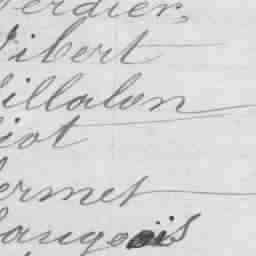 Verdier,
Vibert
Villalon
Viot
Vermet
Vaugeois